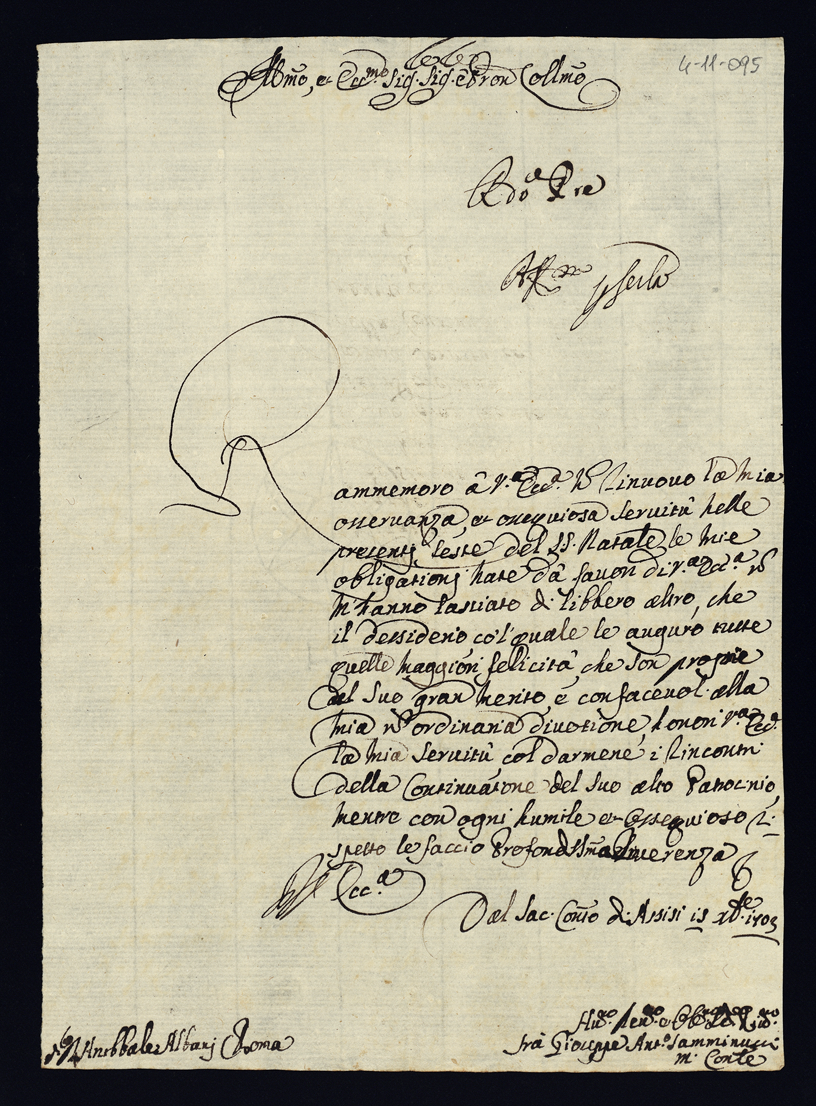 4-11-095
Illmo, et Eccmo Sig. Sig. e Pron Collmo
Rdo Pre
Rammemoro à V.a Ecc.a e rinuovo la mia
osservanza, et ossequiosa servitù nelle
presenti feste del SS. Natale, le mie
obligationj nate da favori di V.a Ecc.a
m'hanno lasciato di libbero altro, che
il dessiderio col quale le auguro tutte
quelle maggiori felicità, che son proprie
del suo gran merito, e confacevol alla
mia ordinaria divotione, honori V.a Ecc.a
la mia servitù col darmene i rincontri
della continuatone del suo alto Patrocinio,
mentre con ogni humile et ossequioso ri-
spetto le faccio profondissma riverenza
Ecc.a
Dal Sac. Conto di Assisi is Xbre 1703
Annibbale Albanj Roma
fra Gioseppe Ant.o
m. Conle